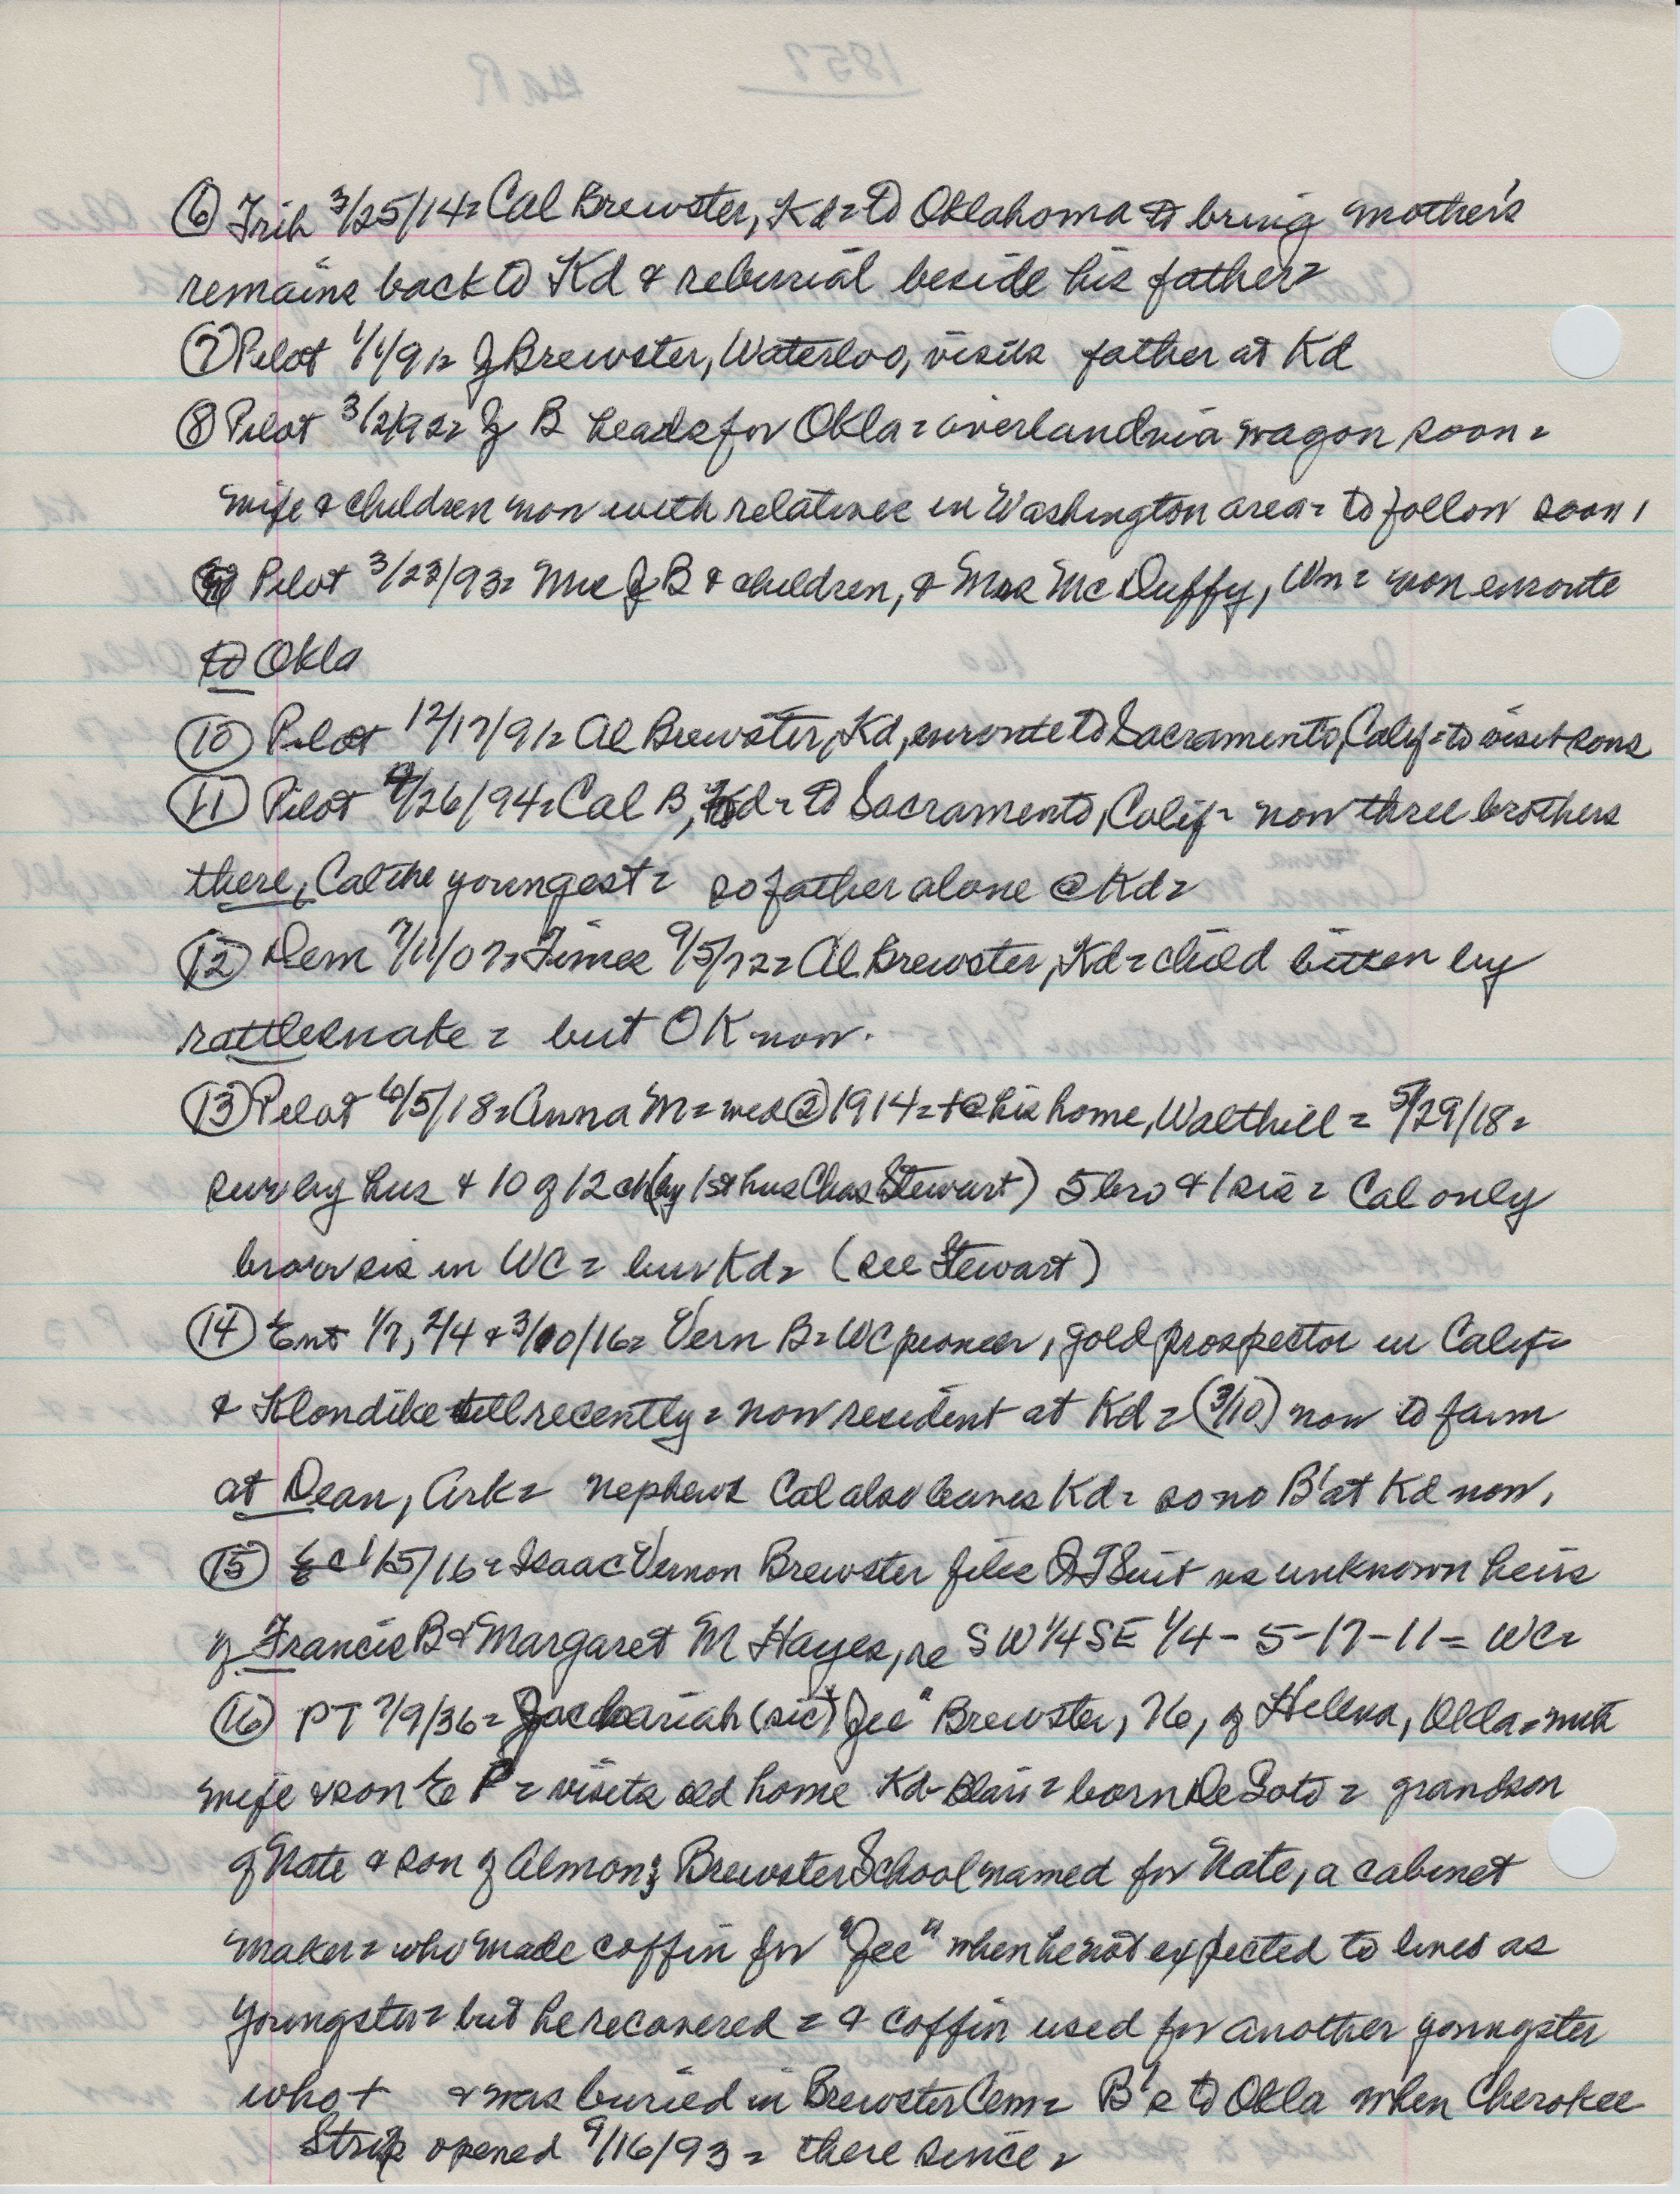 ⑥ Trib 3/25/14= Cal Brewster, Kd= to Oklahoma to bring mother's
remains back to Kd & reburial beside his father=
⑦ Pilot 1/1/91= J Brewster, Waterloo, visits father at Kd
⑧ Pilot 3/2/92= J B heads for Okla= overland via wagon soon=
wife & children now with relatives in Washington area= to follow soon,
Pilot 3/23/93= Mrs J B & children, & Mrs McDuffy, Wn= now enroute
to Okla
⑩ Pilot 12/17/91= Al Brewster, Kd, enroute to Sacramento, Calif= to visit sons
⑪ Pilot 4/26/94= Cal B, Kd= to Sacramento, Calif= now three brothers
there, Cal the youngest= so father alone @ Kd=
⑫ Dem 7/11/07= Times 9/5/72= Al Brewster, Kd= child bitten by
rattlesnake= but OK now.
⑬ Pilot 6/5/18= Anna M= wed ② 1914= + @ his home, Walthill= 5/29/18=
surv by hus & 10 of 12 ch (by 1st hus Chas Stewart) 5 bro & 1 sis= Cal only
bro or sis in WC= bur Kd= (see Stewart)
⑭ Ent 1/7, 2/4 & 3/10/16= Vern B= WC pioneer, gold prospector in Calif=
& Klondike till recently= now resident at Kd= (3/10) now to farm
at Dean, Ark= nephew Cal also leaves Kd= so no B' at Kd now,
⑮ 1/5/16= Isaac Vernon Brewster files QT Suit vs unknown heirs
of Francis B & Margaret M Hayes, re SW 1/4 SE 1/4 - 5-17-11= WC=
⑯ PT 7/9/36= Jachariah (sic) "Jee" Brewster, 76, of Helena, Okla= with
wife & son E P= visits old home Kd-Blair= born DeSoto= grandson
of Nate & son of Almon; Brewster School named for Nate, a cabinet
maker= who made coffin for "Jee" when he not expected to lives as
youngster= but he recovered= & coffin used for another youngster
who + & was buried in Brewster Cem= B's to Okla when Cherokee
Strip opened 9/16/93= there since=